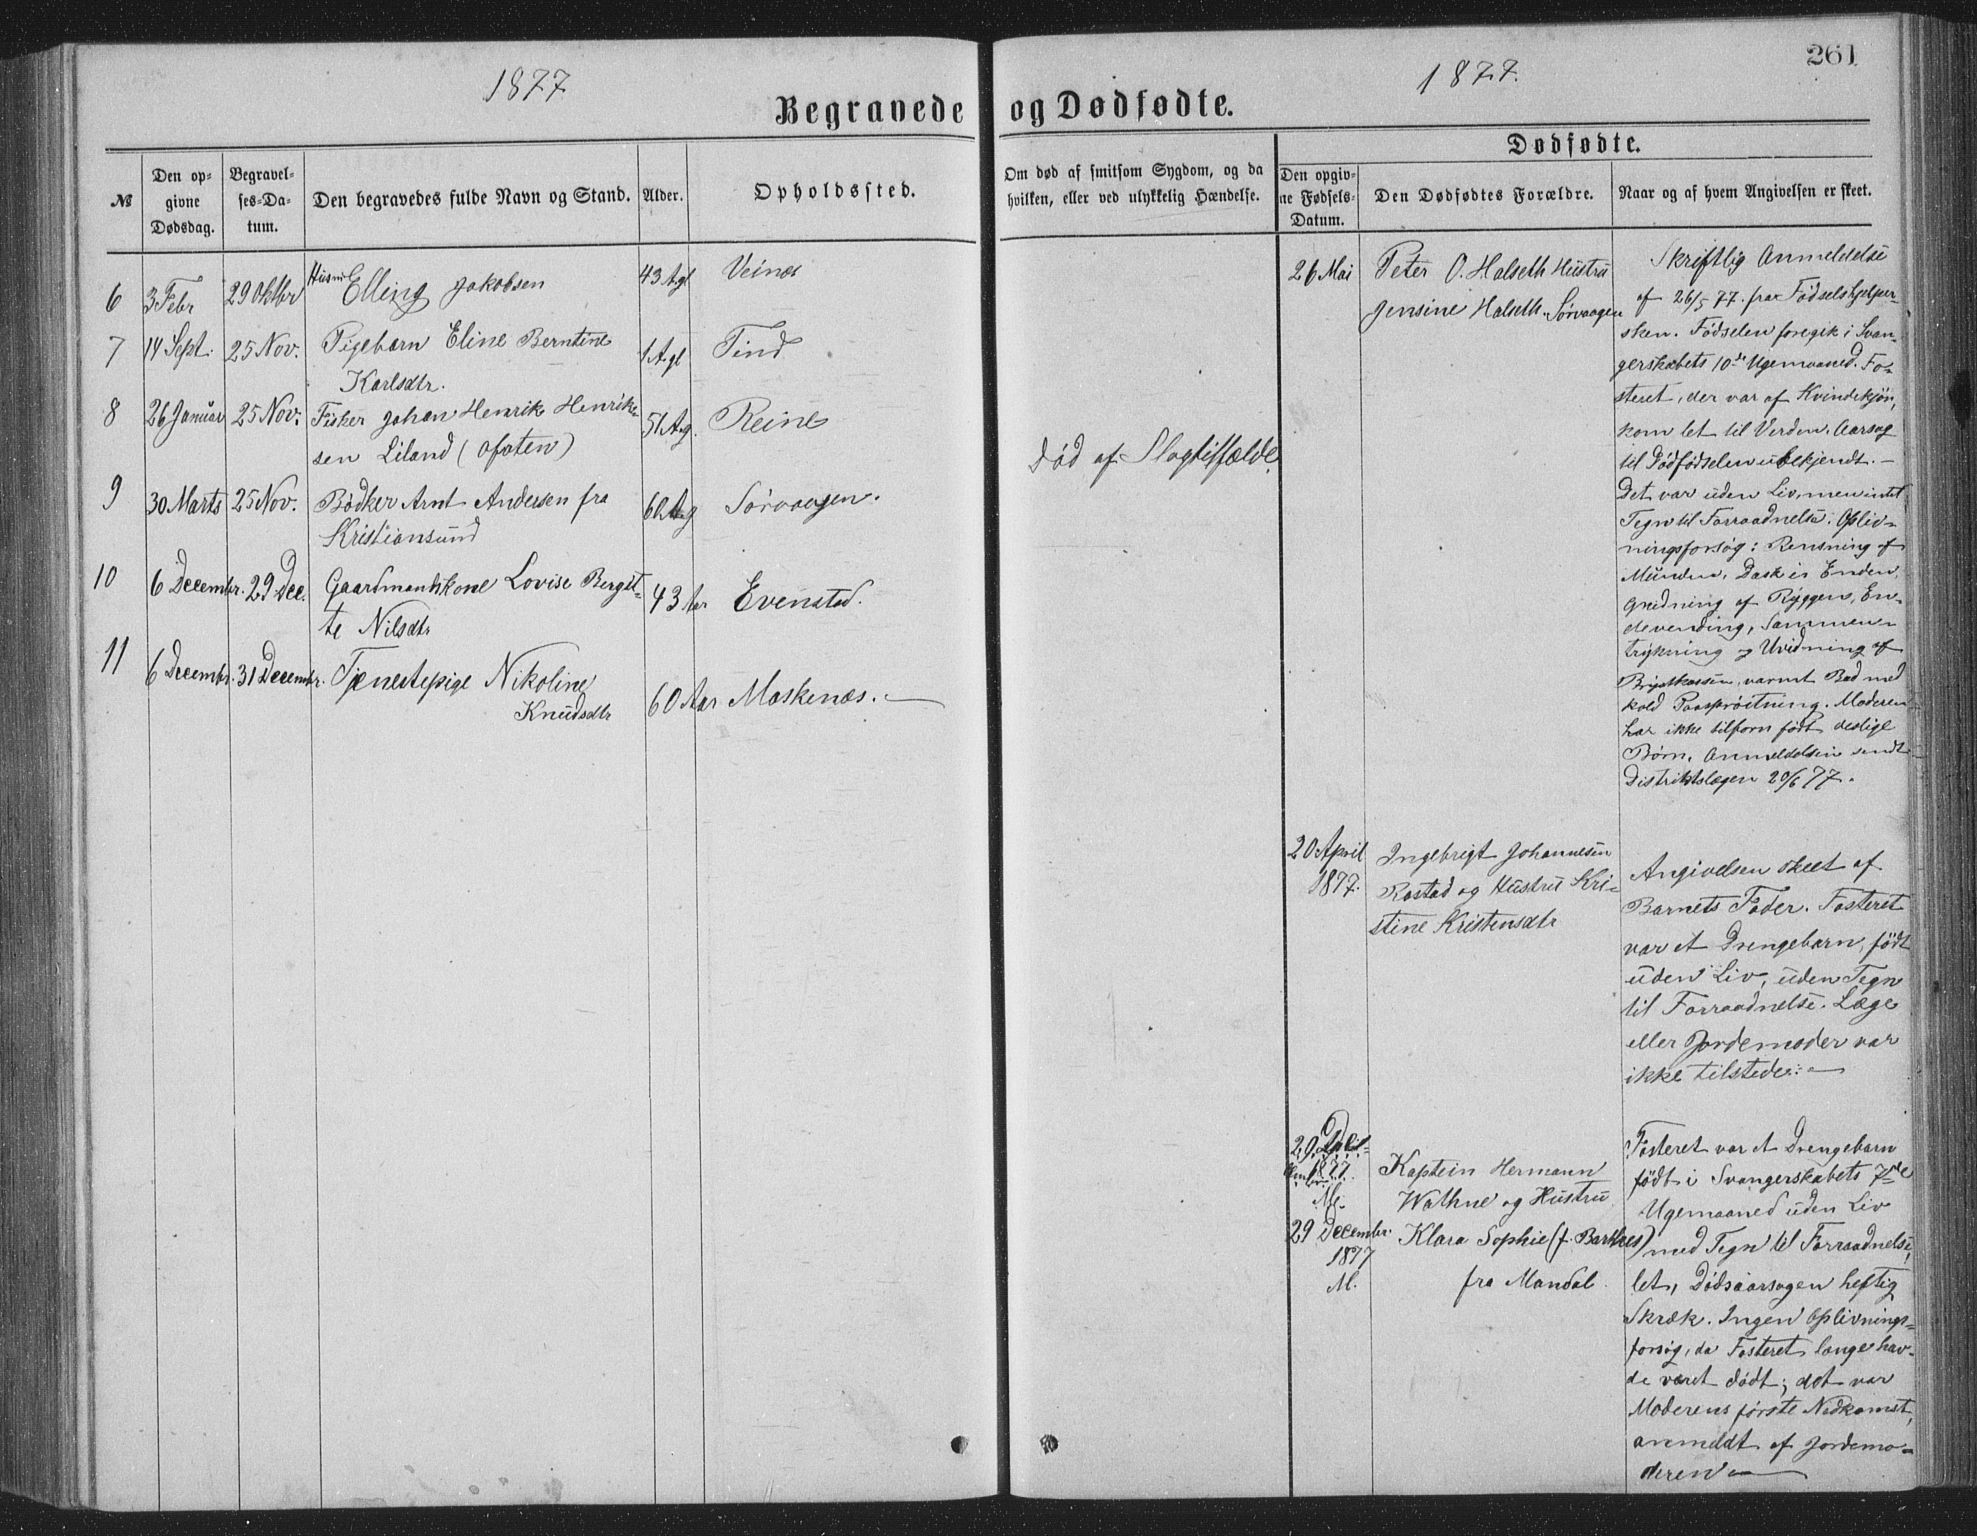 1877
Begravede
№
Den op-
givne
Dødsdag.
Begravel-
ses-Da-
tum.
Den begravedes fulde Navn og Stand.
Alder.
Opholdssted.
6 3 Febr 29 Oktbr Husm. Elling Jakobsen 43 A.gl Veines
7 14 Sept. 25 Nov. Pigebarn Eline Berntine 1 A.gl Tind
Karlsdtr.
8 26 Januar 25 Nov. Fisker Johan Henrik Henrik- 51 A.g. Reine
sen Liland (Ofoten)
9 30 Marts 25 Nov. Bødker Arnt Andersen fra 60 A.g Sørvaagen.
Kristiansund
10 6 Decembr. 29 Dec. Gaardmandskone Lovise Bergit- 43 Aar Evenstad.
te Nilsdtr
11 6 Decembr. 31 Decembr. Tjenestepige Nikoline 60 Aar Moskenæs.
Knudsdtr
261
1877.
og Dødfødte.
Om død af smitsom Sygdom, og da
hvilken, eller ved ulykkelig Hændelse.
Død af Slagtilfælde.
Dødfødte.
Den opgiv-
ne Fødsels-
Datum.
Den Dødfødtes Forældre.
Naar og af hvem Angivelsen er skeet.
26 Mai
Peter O. Halseth Hustru
Jensine Halseth. Sørvaagen
Skriftlig Anmeldelse
af 26/5 77. fra Fødselshjelper-
sken. Fødselen foregik i Svan-
gerskabets 10de Ugemaaned. Fo-
steret, der var af Kvindekjøn,
kom let til Verden. Aarsag
til Dødfødselen ubekjendt. –
Det var uden Liv, men intet
Tegn til Forraadnelse. Opliv-
ningsforsøg: Rensning af
Munden, Dask i Enden,
Gnidning af Ryggen, En-
devending, Sammen-
trykning og Uvidning af
Brystkassen, varmt Bad med
kold Paasprøitning. Moderen
har ikke tilforn født deslige
Børn. Anmeldelsen sendt
Distriktslægen 20/6 77.
20 April
1877.
Ingebrigt Johannesen
Rostad og Hustru Kri-
stine Kristensdtr
Angivelsen skeet af
Barnets Fader. Fosteret
var et Drengebarn, født
uden Liv, uden Tegn
til Forraadnelse. Læge
eller Jordemoder var
ikke tilstede. –
29
1877.
M.
29 Decembr.
1877
M.
Kaptein Hermann
Wathne og Hustru
Klara Sophie (f. Barthes)
fra Mandal
Fosteret var et Drengebarn
født i Svangerskabets 7de
Ugemaaned uden Liv
med Tegn til Forraadnelse,
let, Dødsaarsagen heftig
Skræk. Ingen Oplivnings-
forsøg, da Fosteret længe hav-
de været dødt; det var
Moderens første Nedkomst,
anmeldt af Jordemo-
deren –